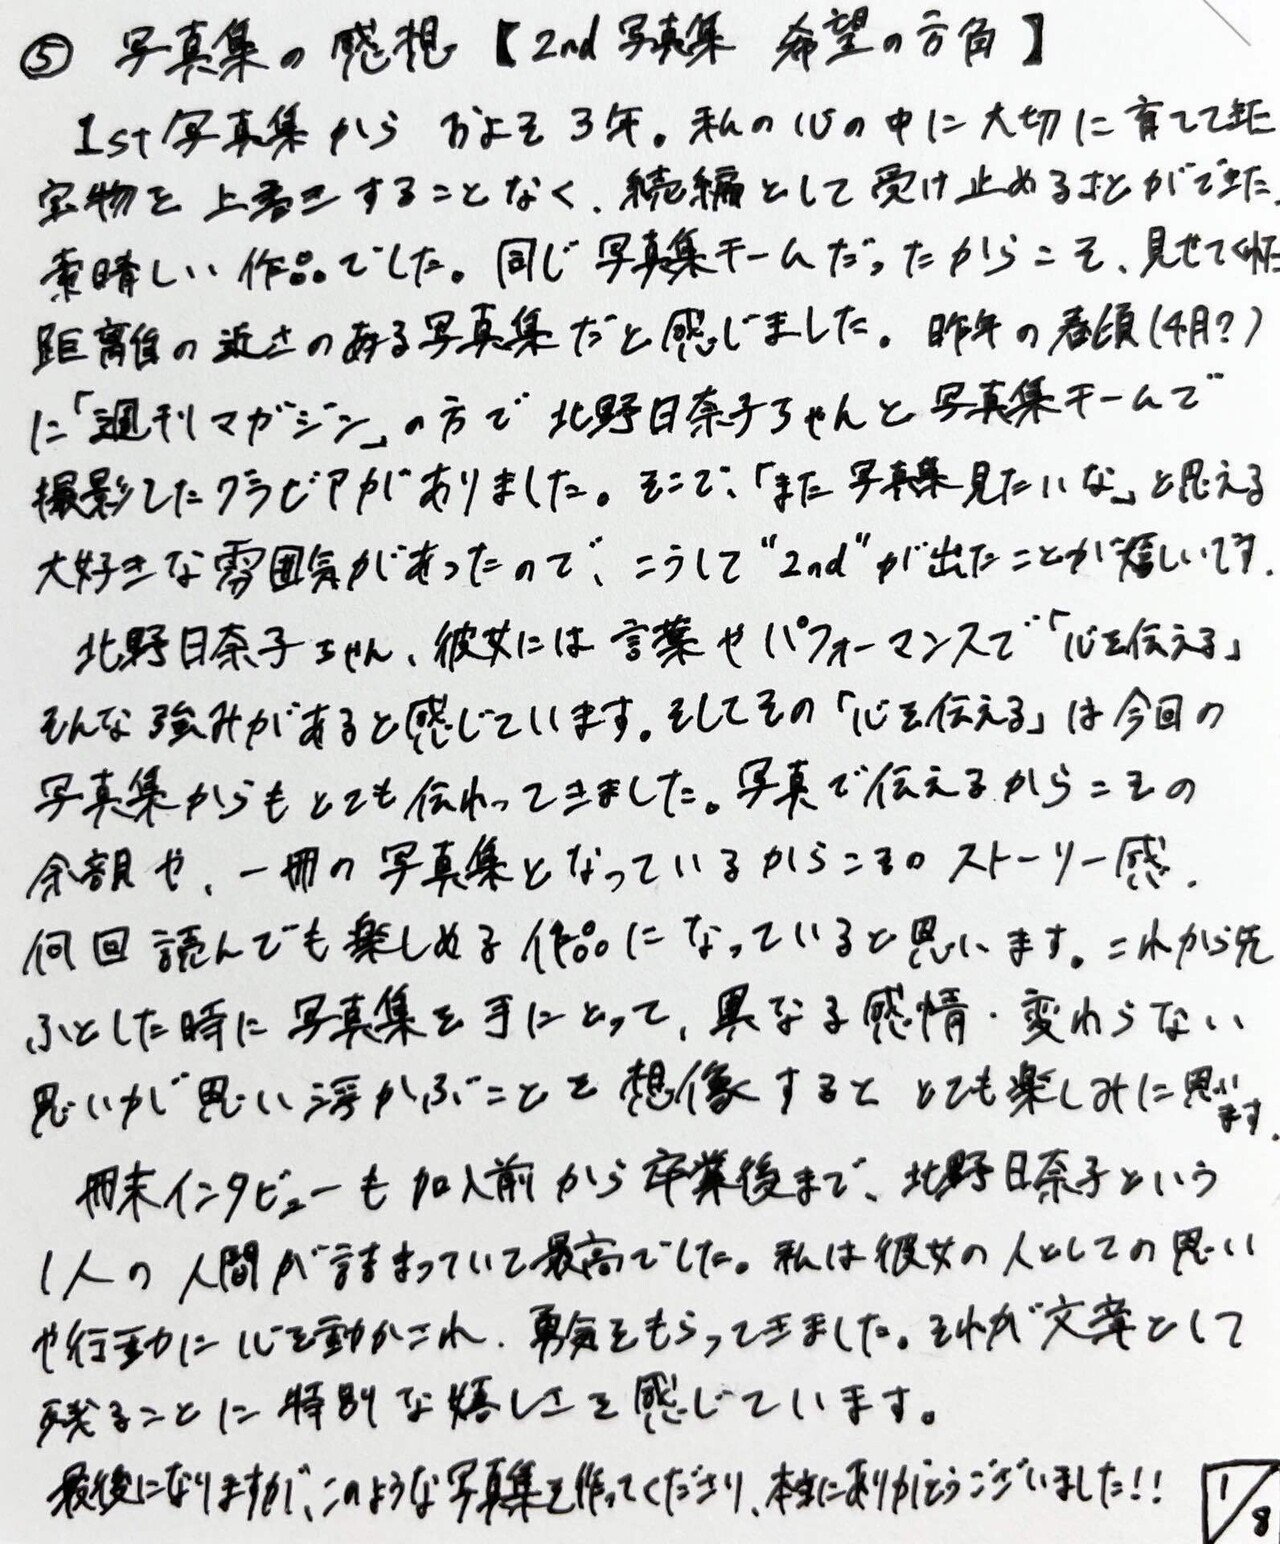 ⑤ 写真集の感想【2nd 写真集 希望の方角】
1st写真集から およそ3年。私の心の中に大切に育てて来た
宝物を上書きすることなく、続編として受け止めることができた、
素晴しい作品でした。同じ写真集チームだったからこそ、見せてくれた
距離の近さのある写真集だと感じました。昨年の春頃(4月?)
に「週刊マガジン」の方で北野日奈子ちゃんと写真集チームで
撮影したグラビアがありました。そこで、「また写真集見たいな」と思える
大好きな雰囲気があったので、こうして"2nd"が出たことが嬉しいです。
北野日奈子ちゃん、彼女には言葉やパフォーマンスで「心を伝える」
そんな強みがあると感じています。そしてその「心を伝える」は今回の
写真集からもとても伝わってきました。写真で伝えるからこその
余韻や、一冊の写真集となっているからこそのストーリー感。
何回読んでも楽しめる作品になっていると思います。これから先
ふとした時に写真集を手にとって、異なる感情・変わらない
思いが思い浮かぶことを想像するととても楽しみに思います。
冊末インタビューも加入前から卒業後まで、北野日奈子という
1人の人間が詰まっていて最高でした。私は彼女の人としての思い
や行動に心を動かされ、勇気をもらってきました。それが文章として
残ることに特別な嬉しさを感じています。
最後になりますが、このような写真集を作ってくださり、本当にありがとうございました!!
1/8